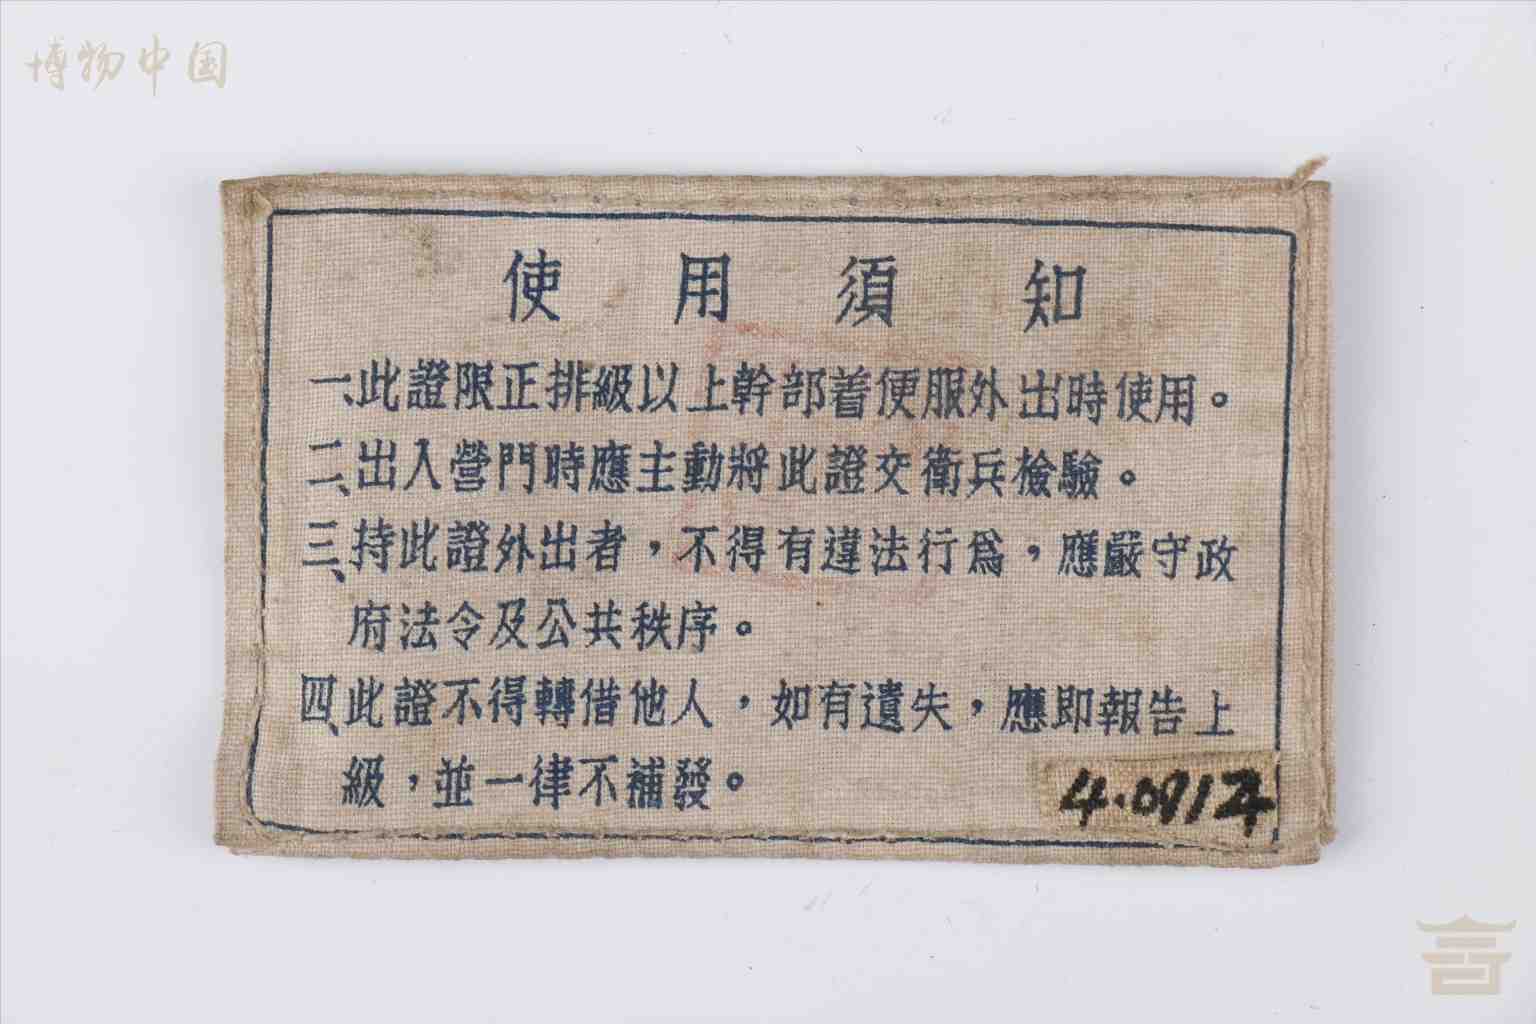 博物中国
使用須知
一、此證限正排級以上幹部着便服外出時使用。
二、出入營門時應主動將此證交衛兵檢驗。
三、持此證外出者，不得有違法行爲，應嚴守政
府法令及公共秩序。
四、此證不得轉借他人，如有遺失，應即報告上
級，並一律不補發。
4.0912